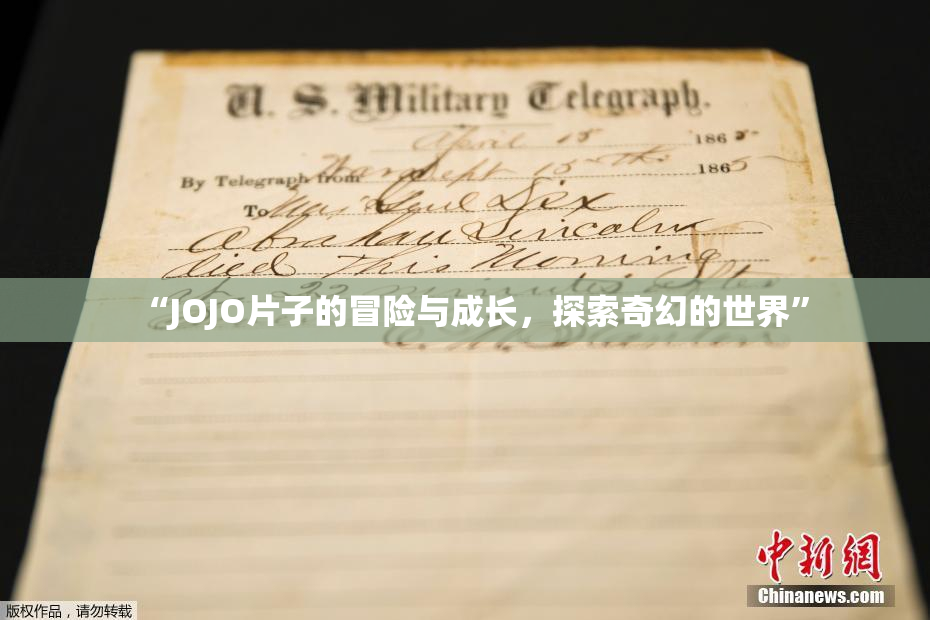 U. S. Military Telegraph.
April 15 1865
By Telegraph from War Dept 15th 1865
To Maj Genl Dix
Abraham Lincoln
died this Morning
22 minutes after
“JOJO片子的冒险与成长，探索奇幻的世界”
中新网
Chinanews.com
版权作品，请勿转载